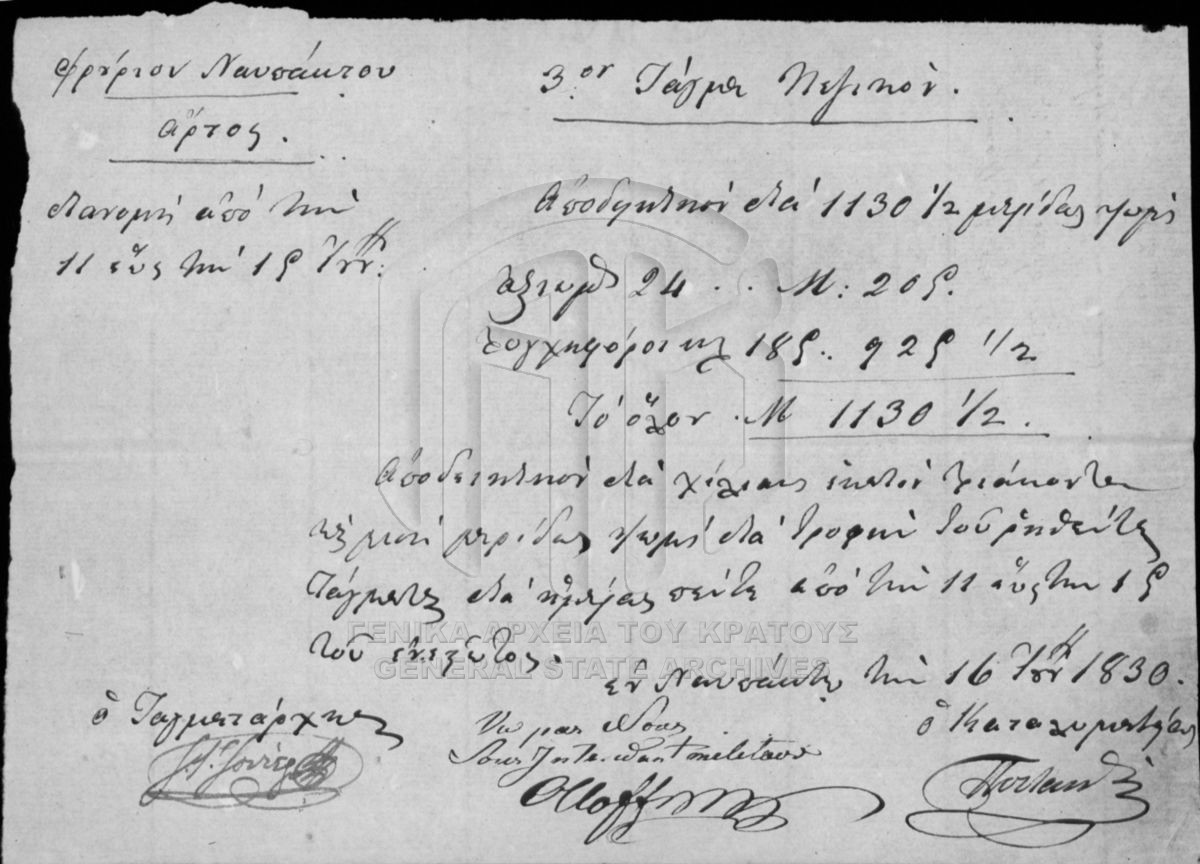 Φρούριον Ναυπάκτου
ἄρτος.
διανομή ἀπό τήν
11 ἕως τήν 15 Ἰουν:
3ον Τάγμα Πεζικόν.
Ἀποδεικτικόν διά 1130 1/2 μερίδας ψωμί
ἀξιωμθ 24 . . Μ: 205.
λογχηφόροι κλ 185.. 925 1/2
Τό ὅλον . Μ 1130 1/2.
Ἀποδεικτικόν διά χίλιαις ἑκατόν τριάκοντα
μερίδας ψωμί διά τροφήν τοῦ ῥηθέντος
Τάγματος διά ἡμέρας πέντε ἀπό τήν 11 ἕως την 15
τοῦ ἐνεστῶτος.
ἐν Ναυπάκτῳ τήν 16 Ἰουν 1830.
ὁ Ταγματάρχης
Vu par Nous
Sous Intendant militaire
ὁ Καταλυματίας
ΓΕΝΙΚΑ ΑΡΧΕΙΑ ΤΟΥ ΚΡΑΤΟΥΣ
GENERAL STATE ARCHIVES